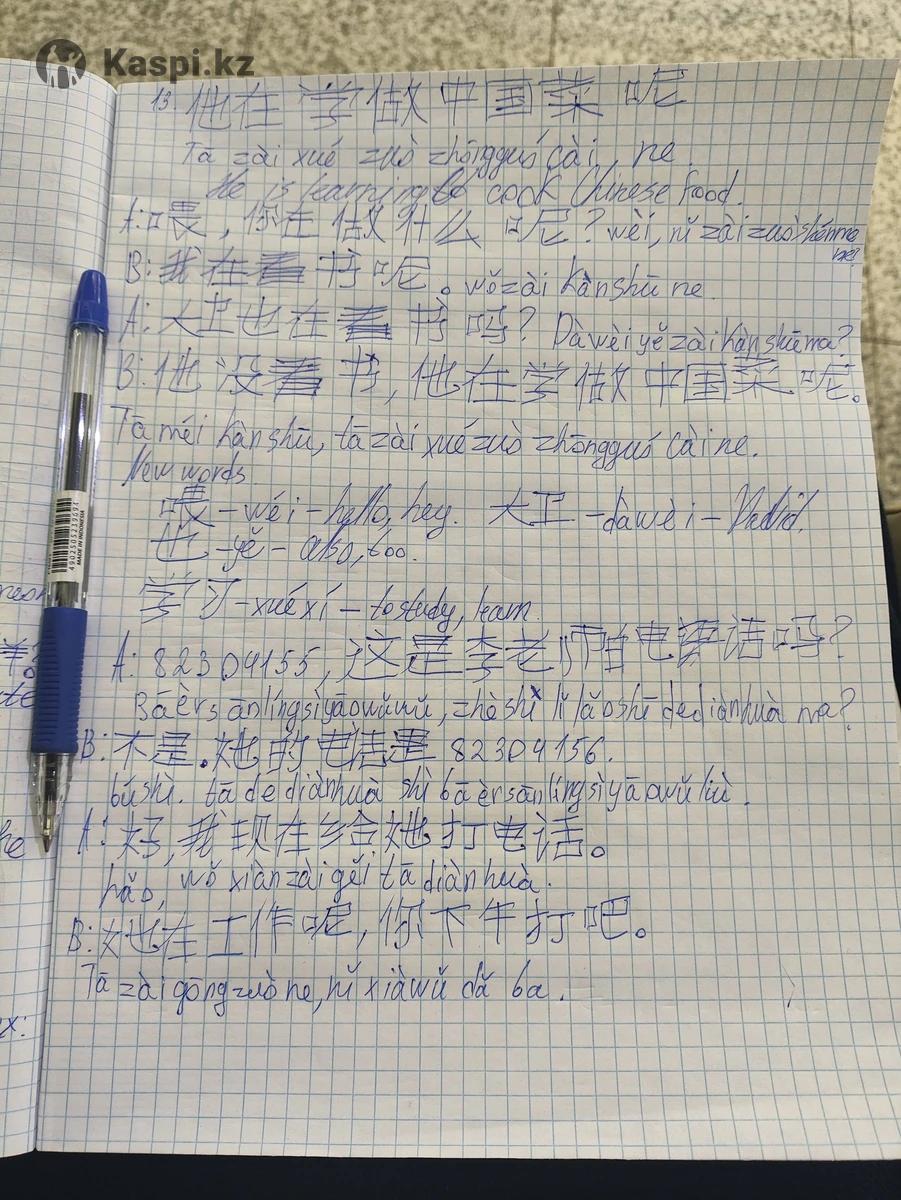 Kaspi.kz
13. 他在学做中国菜呢
Tā zài xué zuò zhōngguó cài, ne.
He is learning to cook Chinese food.
A: 喂, 你在做什么呢? wèi, nǐ zài zuò shénme
ne?
B: 我在看书呢。 wǒ zài kàn shū ne.
A: 大卫也在看书吗? Dàwèi yě zài kàn shū ma?
B: 他没看书, 他在学做中国菜呢。
Tā méi kàn shū, tā zài xué zuò zhōngguó cài ne.
New words
喂 - wéi - hello, hey. 大卫 - dàwèi - David.
也 - yě - also, too.
学习 - xuéxí - to study, learn
A: 82304155, 这是李老师的电话吗?
Bāèrsānlíngsìyāowǔwǔ, zhè shì lǐ lǎoshī de diànhuà ma?
B: 不是. 她的电话是 82304156.
búshì. tā de diànhuà shì bāèrsānlíngsìyāowǔliù.
A: 好, 我现在给她打电话。
hǎo, wǒ xiànzài gěi tā diànhuà.
B: 她在工作呢, 你下午打吧。
Tā zài gōngzuò ne, nǐ xiàwǔ dǎ ba.
4902505239694
MADE IN INDONESIA